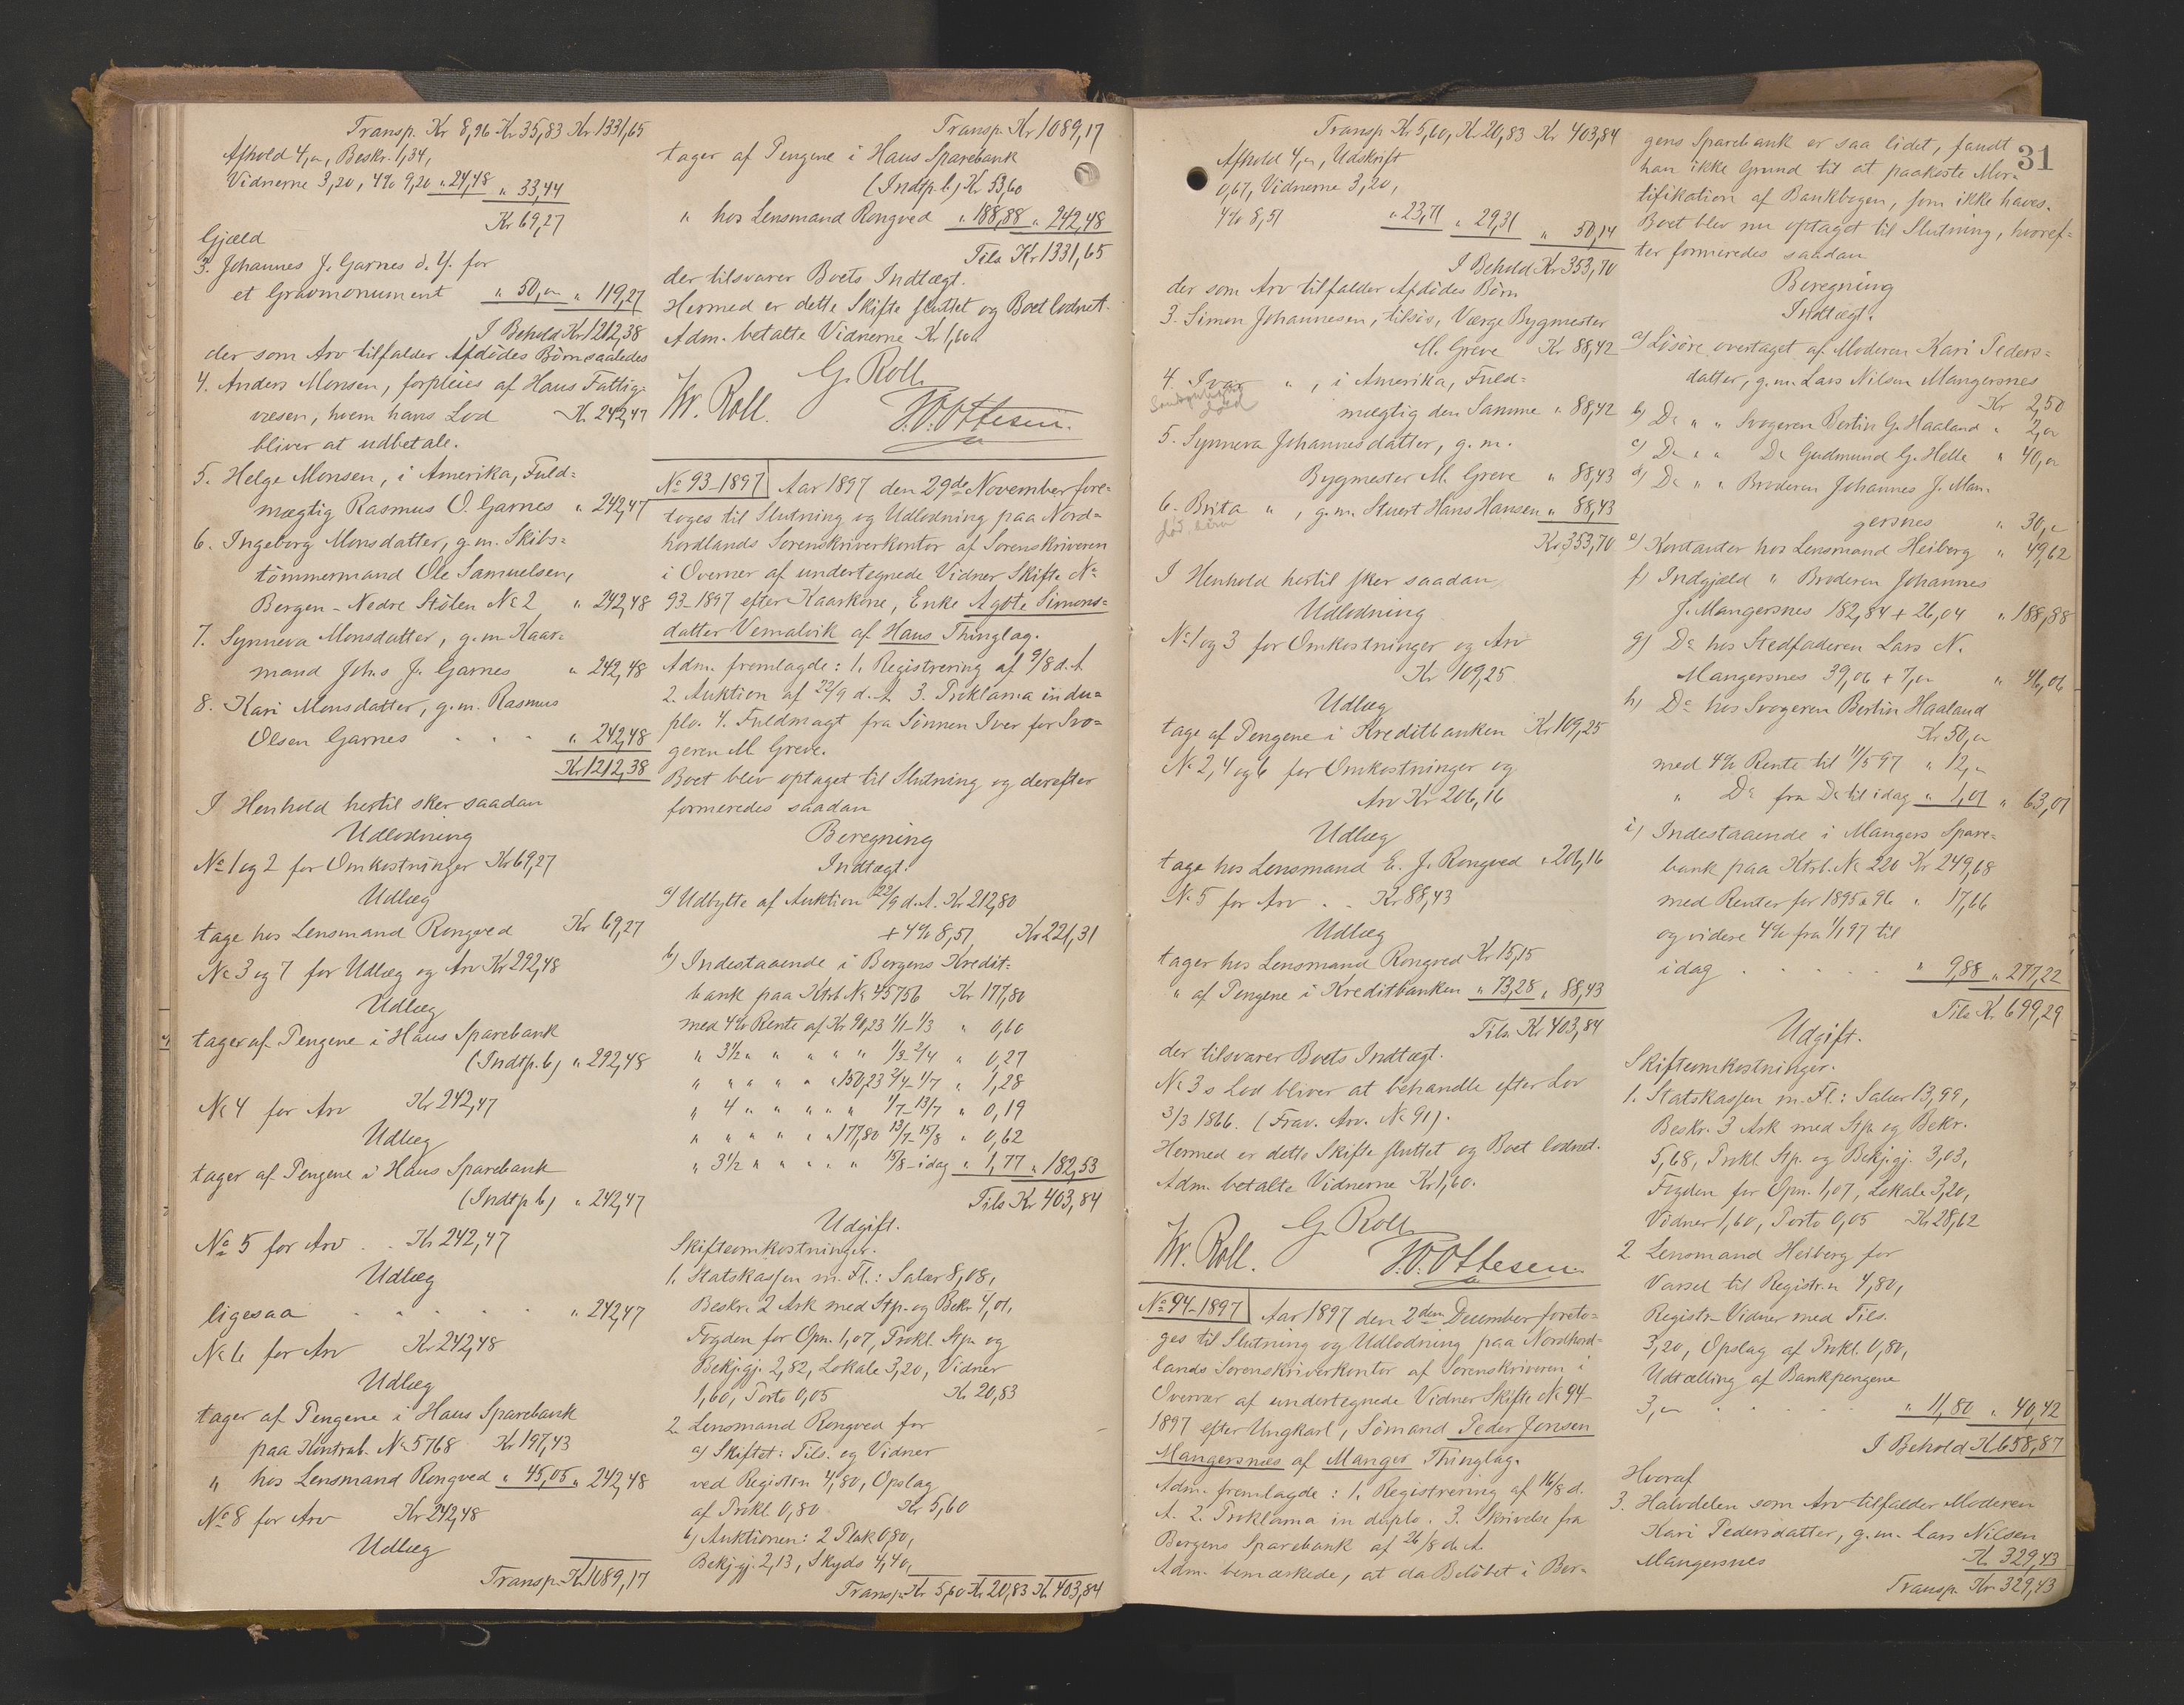 Transp. Kr 8,96 Kr 35,83 Kr 1331,65
Afhold 4,„, Beskr. 1,34,
Vidnerne 3,20, 4% 9,20 „ 24,48 „ 33,44
Kr 69,27
Gjæld
3. Johannes J. Garnes d. Y. for
et Gravmonument „ 50,„ „ 119,27
I Behold Kr 1212,38
der som Arv tilfalder Afdödes Börn saaledes
4. Anders Monsen, forpleies af Haus Fattig-
væsen, hvem hans Lod Kr. 242,47
bliver at udbetale.
5. Helge Monsen, i Amerika, Fuld-
mægtig Rasmus O. Garnes „ 242,47
6. Ingeborg Monsdatter, g. m. Skibs-
tömmermand Ole Samuelsen,
Bergen - Nedre Stölen No 2 „ 242,48
7. Synneva Monsdatter, g. m. Kaar-
mand Johs J. Garnes „ 242,48
8. Kari Monsdatter, g. m. Rasmus
Olsen Garnes . . . „ 242,48
Kr 1212,38
I Henhold hertil sker saadan
Udlodning
No 1 og 2 for Omkostninger Kr 69,27
Udlæg
tage hos Lensmand Rongved Kr 69,27
No 3 og 7 for Udlæg og Arv Kr 292,48
Udlæg
tager af Pengene i Haus Sparebank
(Indtp. b) „ 292,48
No 4 for Arv Kr 242,47
Udlæg
tager af Pengene i Haus Sparebank
(Indtp b) „ 242,47
No 5 for Arv . . Kr 242,47
Udlæg
ligesaa . . . . . „ 242,47
No 6 for Arv Kr 242,48
Udlæg
tager af Pengene i Haus Sparebank
paa Kontrab. No 5768 Kr 197,43
„ hos Lensmand Rongved „ 45,05 „ 242,48
No 8 for Arv Kr 242,48
Udlæg
Transp. Kr 1089,17
Transp. Kr 1089,17
tager af Pengene i Haus Sparebank
(Indtp. b) Kr 53,60
„ hos Lensmand Rongved „ 188,88 „ 242,48
Tils. Kr 1331,65
der tilsvarer Boets Indtægt.
Hermed er dette Skifte sluttet og Boet lodnet.
Adm. betalte Vidnerne Kr 1,60.
G. Roll
Kr. Roll. Ottesen.
No 93-1897 Aar 1897 den 29de November fore-
toges til Slutning og Udlodning paa Nord-
hordlands Sorenskriverkontor af Sorenskriveren
i Overvær af undertegnede Vidner Skifte No
93-1897 efter Kaarkone, Enke Agote Simons-
datter Vemalvik af Haus Thinglag.
Adm. fremlagde: 1. Registrering af 9/8 d. A.
2. Auktion af 22/9 d. A. 3. Proklama in du-
plo. 4. Fuldmagt fra Sönnen Iver for Svo-
geren M. Greve.
Boet blev optaget til Slutning og derefter
formeredes saadan
Beregning
Indtægt.
a) Udbytte af Auktion 22/9 d. A. Kr 212,80
+ 4% 8,51 Kr 221,31
b) Indestaaende i Bergens Kredit-
bank paa Ktrb. No 45756 Kr 177,80
med 4% Rente af Kr 90,23 1/1-1/3 „ 0,60
„ 3½ „ „ „ „ „ 1/3-2/4 „ 0,27
„ „ „ „ „ „ 150,23 2/4-1/7 „ 1,28
„ 4 „ „ „ „ „ 1/7-13/7 „ 0,19
„ „ „ „ „ „ 177,80 13/7-15/8 „ 0,62
„ 3½ „ „ „ „ „ 15/8-idag „ 1,77 „ 182,53
Tils Kr 403,84
Udgift.
Skifteomkostninger.
1. Statskassen m. Fl.: Salær 8,08,
Beskr. 2 Ark med Stp. og Bekr 4,01,
Fogden for Opn. 1,07, Prokl. Stp. og
Bekj.gj. 2,82, Lokale 3,20, Vidner
1,60, Porto 0,05 Kr. 20,83
2. Lensmand Rongved for
a) Skiftet: Tils. og Vidner
ved Registr.n 4,80, Opslag
af Prokl. 0,80 Kr 5,60
b) Auktionen: 2 Plak 0,80,
Bekj.gj. 2,13, Skyds 4,40,
Transp. Kr 5,60 Kr 20,83 Kr 403,84
Transp Kr 5,60, Kr 20,83 Kr 403,84
Afhold 4,„, Udskrift
0,67, Vidnerne 3,20,
4% 8,51 „ 23,71 „ 29,31 „ 50,14
I Behold Kr 353,70
der som Arv tilfalder Afdödes Börn
3. Simon Johannesen, tilsös, Værge Bygmester
M. Greve Kr 88,42
4. Ivar „ , i Amerika, Fuld-
mægtig den Samme „ 88,42
5. Synneva Johannesdatter, g. m.
Bygmester M. Greve „ 88,43
6. Brita „ , g. m. Stuert Hans Hansen „ 88,43
Kr 353,70
I Henhold hertil sker saadan
Udlodning
No 1 og 3 for Omkostninger og Arv
Kr 109,25
Udlæg
tage af Pengene i Kreditbanken Kr 109,25
No 2, 4 og 6 for Omkostninger og
Arv Kr 206,16
Udlæg
tage hos Lensmand E. J. Rongved „ 206,16
No 5 for Arv . . Kr 88,43
Udlæg
tager hos Lensmand Rongved Kr 15,15
„ af Pengene i Kreditbanken „ 73,28 „ 88,43
Tils. Kr 403,84
der tilsvarer Boets Indtægt.
No 3s Lod bliver at behandle efter Lov
3/3 1866. (Frav. Arv. No 91).
Hermed er dette Skifte sluttet og Boet lodnet.
Adm. betalte Vidnerne Kr 1,60.
G. Roll
Kr. Roll. Ottesen.
No 94-1897 Aar 1897 den 2den December foreto-
ges til Slutning og Udlodning paa Nordhord-
lands Sorenskriverkontor af Sorenskriveren i
Overvær af undertegnede Vidner Skifte No 94-
1897 efter Ungkarl, Sömand Peder Jonsen
Mangersnes af Manger Thinglag.
Adm. fremlagde: 1. Registrering af 16/8 d.
A. 2. Proklama in duplo. 3. Skrivelse fra
Bergens Sparebank af 26/8 d. A.
Adm. bemærkede, at da Belöbet i Ber-
31
gens Sparebank er saa lidet, fandt
han ikke Grund til at paakoste Mor-
tifikation af Bankbogen, som ikke haves.
Boet blev nu optaget til Slutning, hvoref-
ter formeredes saadan
Beregning
Indtægt.
a) Lösöre overtaget af Moderen Kari Peders-
datter, g. m. Lars Nilsen Mangersnes
Kr 2,50
b) Do „ „ Svogeren Bertin G. Haaland „ 2,„
c) Do „ „ Do Gudmund G. Helle „ 40,„
d) Do „ „ Broderen Johannes J. Man-
gersnes „ 30,„
e) Kontanter hos Lensmand Heiberg „ 49,62
f) Indgjæld „ Broderen Johannes
J. Mangersnes 182,84 + 26,04 „ 188,88
g) Do hos Stedfaderen Lars N.
Mangersnes 39,06 + 7,„ „ 46,06
h) Do hos Svogeren Bertin Haaland
Kr 50,„
med 4% Rente til 11/5 97 „ 12,„
„ Do fra Do til idag „ 1,01 „ 63,01
i) Indestaaende i Mangers Spare-
bank paa Ktrb. No 220 Kr 249,68
med Renter for 1895 & 96 „ 17,66
og videre 4% fra 1/1 97 til
idag . . . . . „ 9,88 „ 277,22
Tils Kr 699,29
Udgift.
Skifteomkostninger.
1. Statskassen m. Fl.: Salær 13,99,
Beskr. 3 Ark med Stp. og Bekr.
5,68, Prokl. Stp. og Bekj.gj. 3,03,
Fogden for Opn. 1,07, Lokale 3,20,
Vidner 1,60, Porto 0,05 Kr 28,62
2. Lensmand Heiberg for
Varsel til Registr.n 4,80,
Registr. Vidner med Tils.
3,20, Opslag af Prokl. 0,80,
Udtælling af Bankpengene
3,„ . . . . „ 11,80 „ 40,42
I Behold Kr 658,87
Hvoraf
3. Halvdelen som Arv tilfalder Moderen
Kari Pedersdatter, g. m. Lars Nilsen
Mangersnes Kr. 329,43
Transp. Kr 329,43